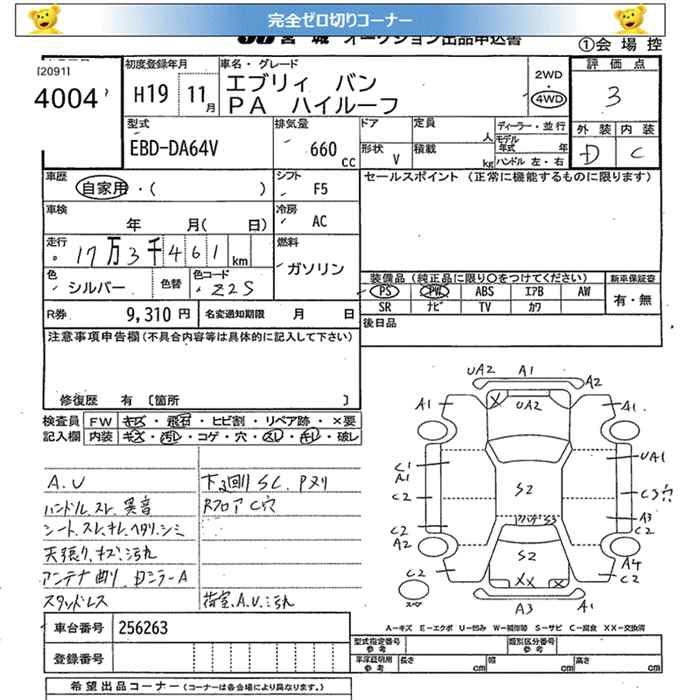 完全ゼロ切りコーナー
JU宮城 オークション出品申込書
①会場控
[2091]
4004
初度登録年月
H19 11月
車名・グレード
エブリィ バン
PA ハイルーフ
2WD
・
4WD
評価点
3
外装 内装
D C
型式
EBD-DA64V
排気量
660cc
ドア
定員 人
ディーラー・並行
モデル年式 年
形状 V
積載 kg
ハンドル 左・右
車歴
自家用・( )
シフト
F5
セールスポイント (正常に機能するものに限ります)
車検
年 月( 日)
冷房
AC
走行
17万3千461km
燃料
ガソリン
色
シルバー
色替
色コード
Z2S
装備品(純正品に限り○をつけてください)
新車保証書
PS PW ABS エアB AW
有・無
SR ナビ TV カワ
R券 9,310円
名変通知期限 月 日
後日品
注意事項申告欄(不具合内容等は具体的に記入して下さい)
修復歴 有 〔箇所 〕
検査員 FW キズ・飛石・ヒビ割・リペア跡・×要
記入欄 内装 キズ・汚レ・コゲ・穴・スレ・キレ・破レ
A.U
ハンドル.スレ 異音
シート.スレ.キレ.ヘタリ.シミ
天張り.キズ.汚れ
アンテナ曲り.
スタッドレス
下回りSC.Pヌリ
RフロアC穴
荷室.A.U.汚れ
UA2 A1 A2
A1 UA2 A1
C1
A1
UA1
C2 S2 C3穴
A3
C2 S3 C2
A2 S2 A4
C2 XX C2
スペア A3 A1
A-キズ E-エクボ U-凹み W-補修跡 S-サビ C-腐食 XX-交換済
車台番号 256263
型式指定番号 参考
類別区分番号 参考
登録番号
車庫証明用 参考 長さ cm 幅 cm 高さ cm
希望出品コーナー (コーナーは各会場により異なります。)